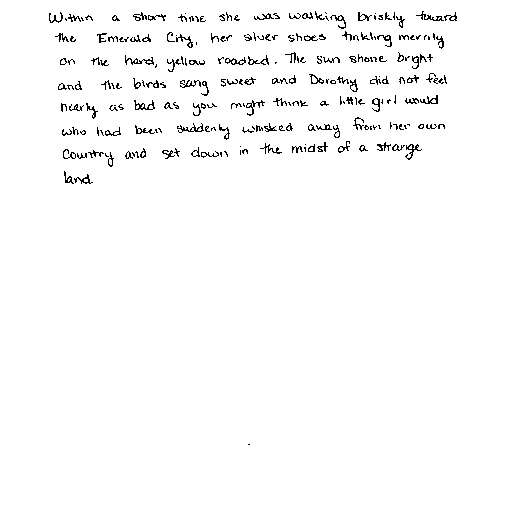 Within a short time she was walking briskly toward
the Emerald City, her silver shoes tinkling merrily
on the hard, yellow roadbed. The sun shone bright
and the birds sang sweet and Dorothy did not feel
nearly as bad as you might think a little girl would
who had been suddenly whisked away from her own
Country and set down in the midst of a strange
land.